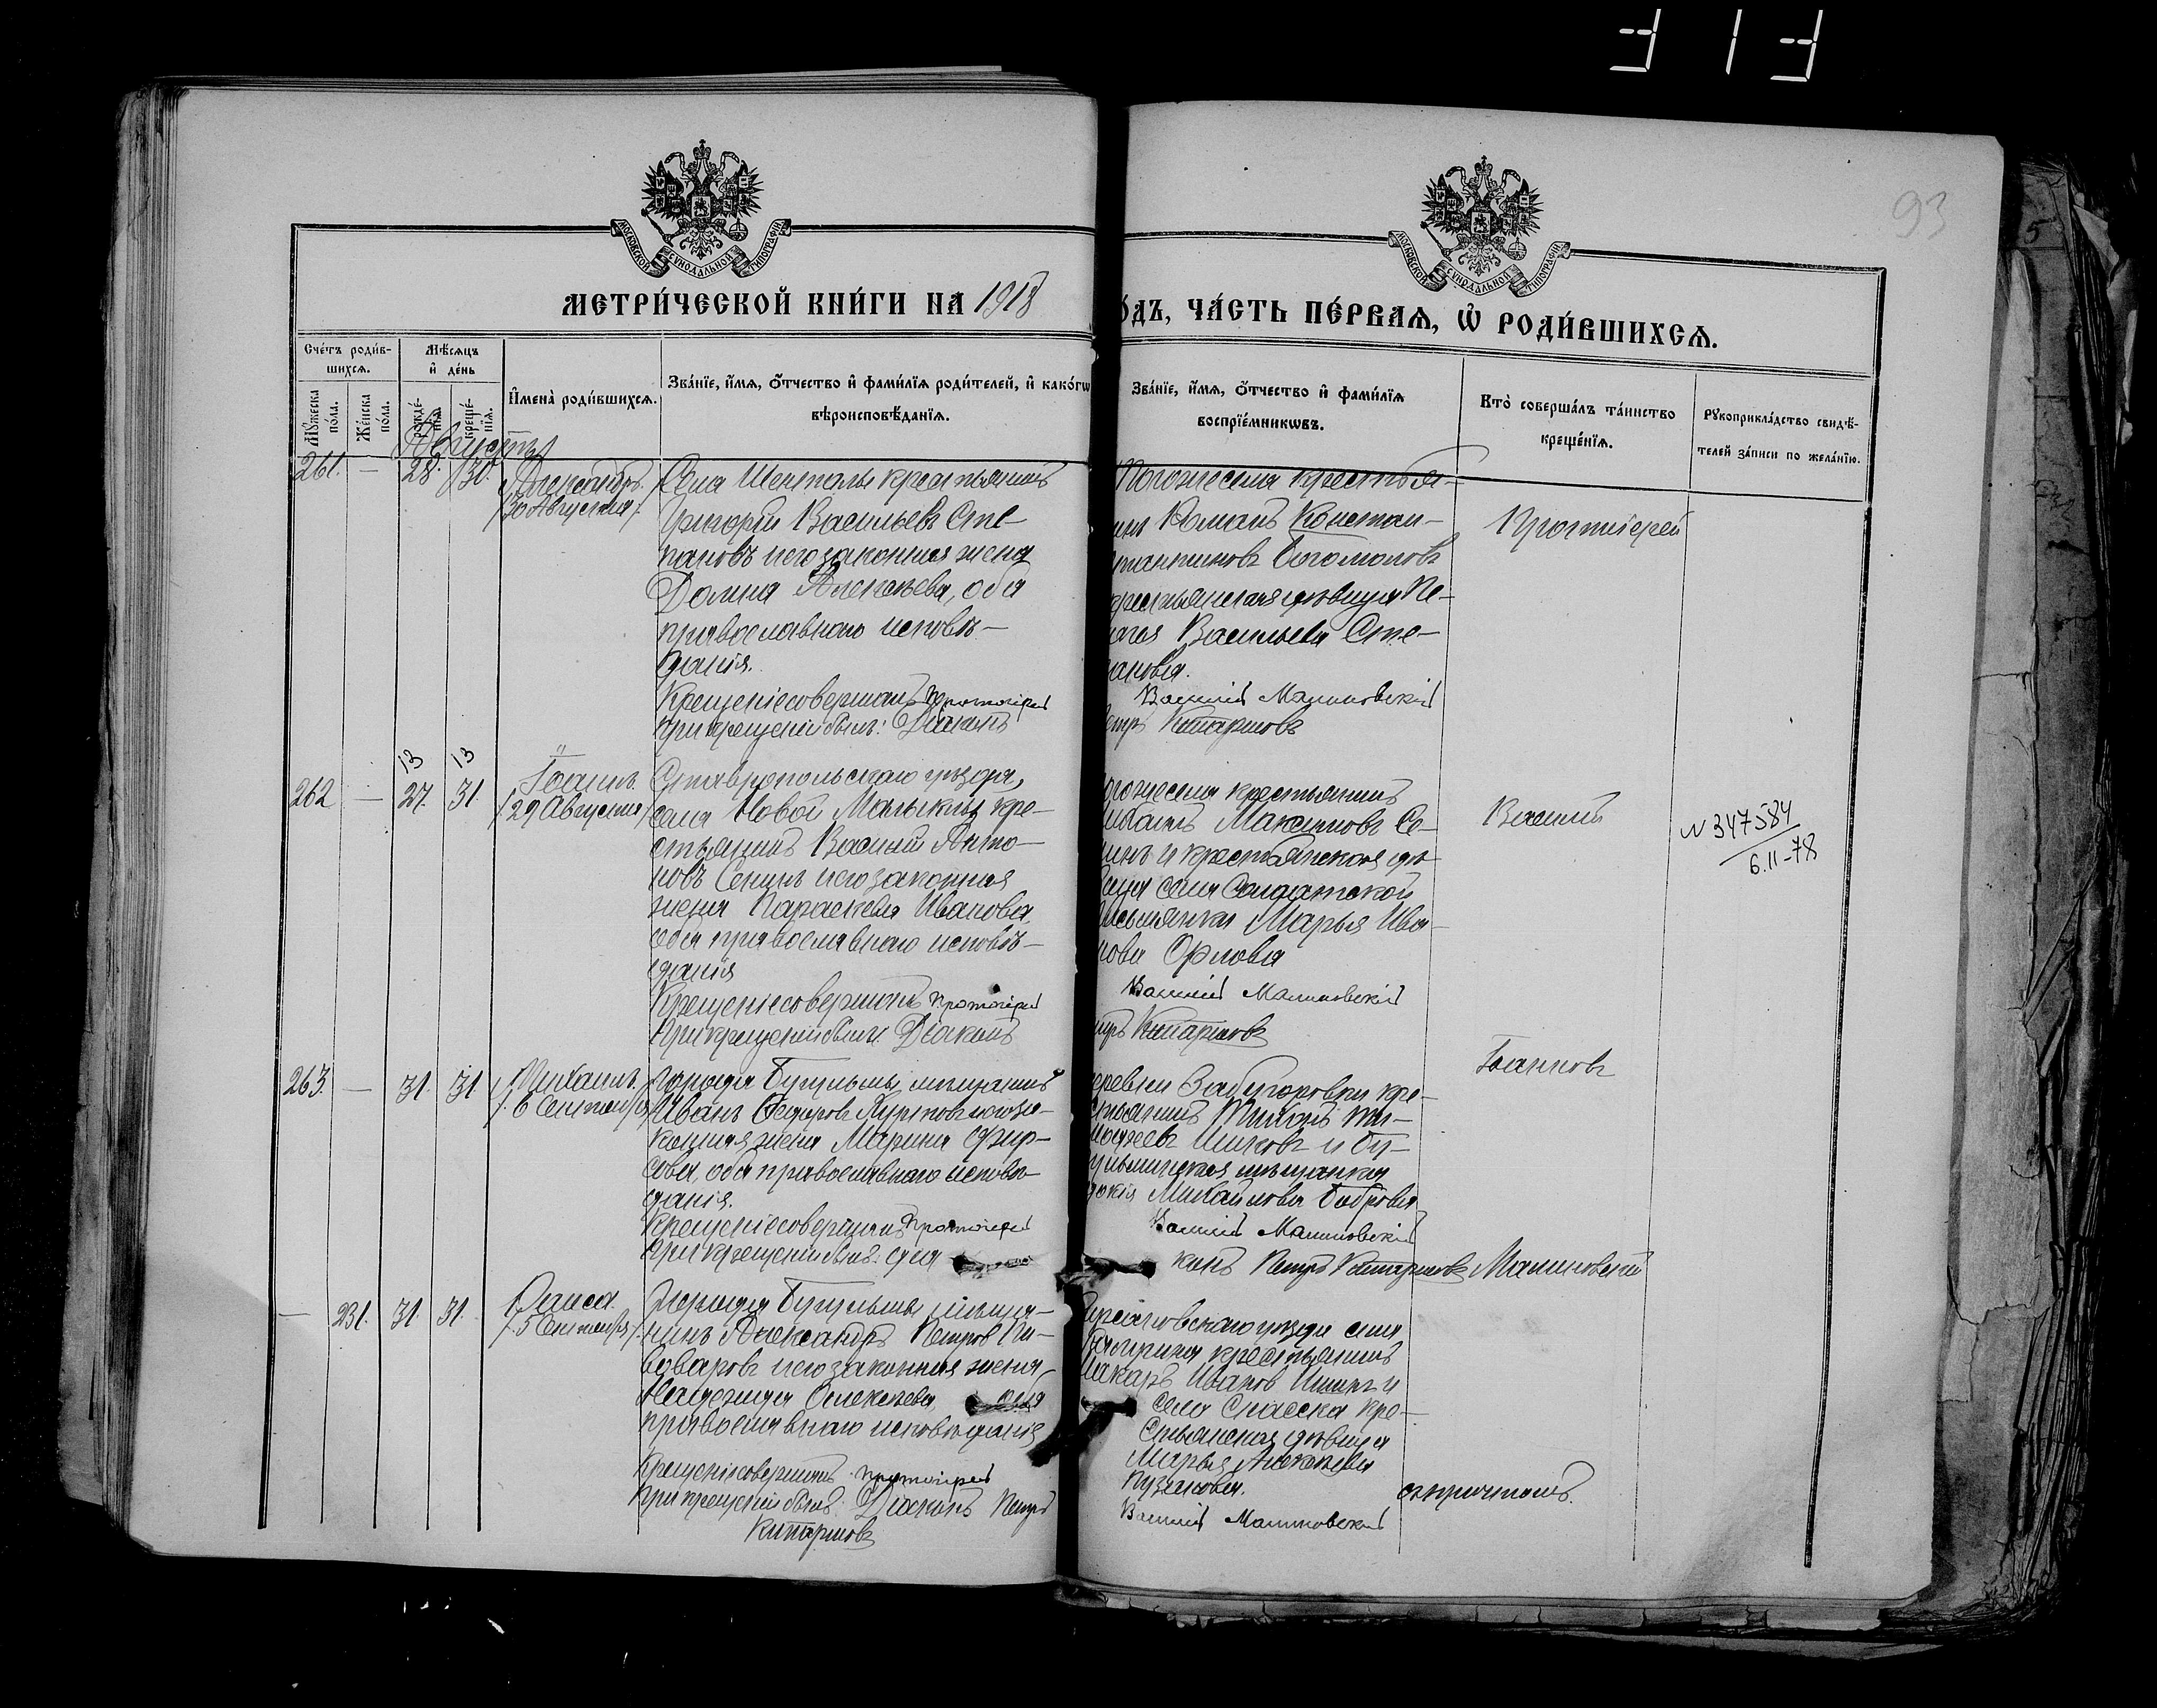 313
93
МОСКОВСКОЙ СѴНОДАЛЬНОЙ ТИПОГРАФІИ
МОСКОВСКОЙ СѴНОДАЛЬНОЙ ТИПОГРАФІИ
МЕТРИ́ЧЕСКОЙ КНИ́ГИ НА 1918
О́ДЪ, ЧА́СТЬ ПЕ́РВАѦ, Ѿ РОДИ́ВШИХСѦ.
Сче́тъ роди́в-
шихсѧ.
Мѣ́сѧцъ
и҆ де́нь
Мꙋ́жеска по́ла.
Же́нска по́ла.
креще́-
нїѧ.
И҆мена̀ роди́вшихсѧ.
Зва́нїе, и҆́мѧ, ѻ҆́тчество и҆ фами́лїѧ роди́телей, и҆ како́гѡ
вѣроисповѣ́данїѧ.
Зва́нїе, и҆́мѧ, ѻ҆́тчество и҆ фами́лїѧ
воспрїе́мникѡвъ.
Кто̀ соверша́лъ та́инство
креще́нїѧ.
Рꙋкоприкла́дство свидѣ́-
телей за́писи по жела́нїю.
Августъ
261. — 28. 30. Александръ.
/30 Августа/.
Села Шенталы крестьянинъ
Григорій Васильевъ Сте-
пановъ и его законная жена
Домна Алексѣева, оба
православнаго исповѣ-
данія.
Крещеніе совершалъ Протоіерей
При крещеніи былъ: Діаконъ
Того же села крестья-
инъ Романъ Констан-
тантиновъ Богомоловъ
крестьянская дѣвица Пе-
лагея Васильева Сте-
анова.
Василій Малиновскій
етръ Кипарисовъ
Протоіерей
13 13
262 — 27. 31. Іоаннъ.
/29 Августа/
Ставропольскаго уѣзда,
села Новой Малыклы кре-
стьянинъ Василій Анто-
новъ Сенинъ и его законная
жена Параскева Иванова,
оба православнаго исповѣ-
данія
Крещеніе совершалъ Протоіерей
При крещеніи былъ: Діаконъ
ого же села крестьянинъ
Максимовъ Се-
инъ и крестьянская дѣ-
вица села Солдатской
Марья Ива-
нова Орлова
Василій Малиновскій
етръ Кипарисовъ
Василій
N 347584
6.11-78
263. — 31. 31 Михаилъ.
/. 6 Сентября
Города Бугульмы мѣщанинъ
Иванъ Ѳедоровъ и его за-
конная жена Марина Фир-
сова, оба православнаго исповѣ-
данія.
Крещеніе совершалъ Протоіерей
При крещеніи былъ: діа
еревни Забугоровки кре-
стьянинъ Тихонъ Ти-
моѳеевъ и Бу-
гульминская мѣщанка
докія Михайлова Боброва
Василій Малиновскій
конъ Петръ Кипарисовъ
Іоанновъ
Малиновскій
— 231. 31. 31. Раиса.
/. 5 Сентября/.
Города Бугульмы мѣща-
нинъ Александръ Петровъ Пи-
воваровъ и его законная жена
Надежда Алексѣева, оба
православнаго исповѣданія
Крещеніе совершалъ Протоіерей
При крещеніи былъ: Діаконъ Петръ
Кипарисовъ
уѣзда села
крестьянинъ
Макаръ Ивановъ и
села Спасска кре-
стьянская дѣвица
Марья Алексѣева
Кузнецова.
Василій Малиновскій
съ причтомъ.